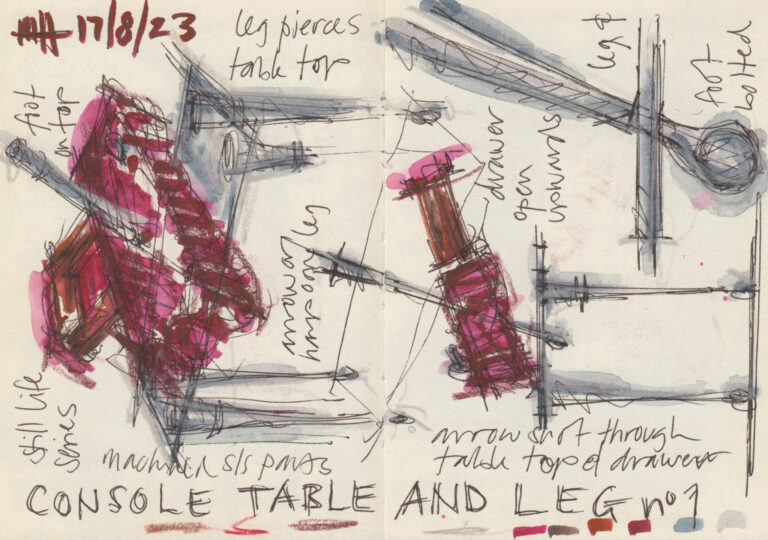 17/8/23
leg pierces
table top
foot
on top
leg &
foot
bolted
drawer
open
arrow or
harpoon leg
still life
series
machined s/s parts
arrow shot through
table top & drawer
CONSOLE TABLE AND LEG nº1